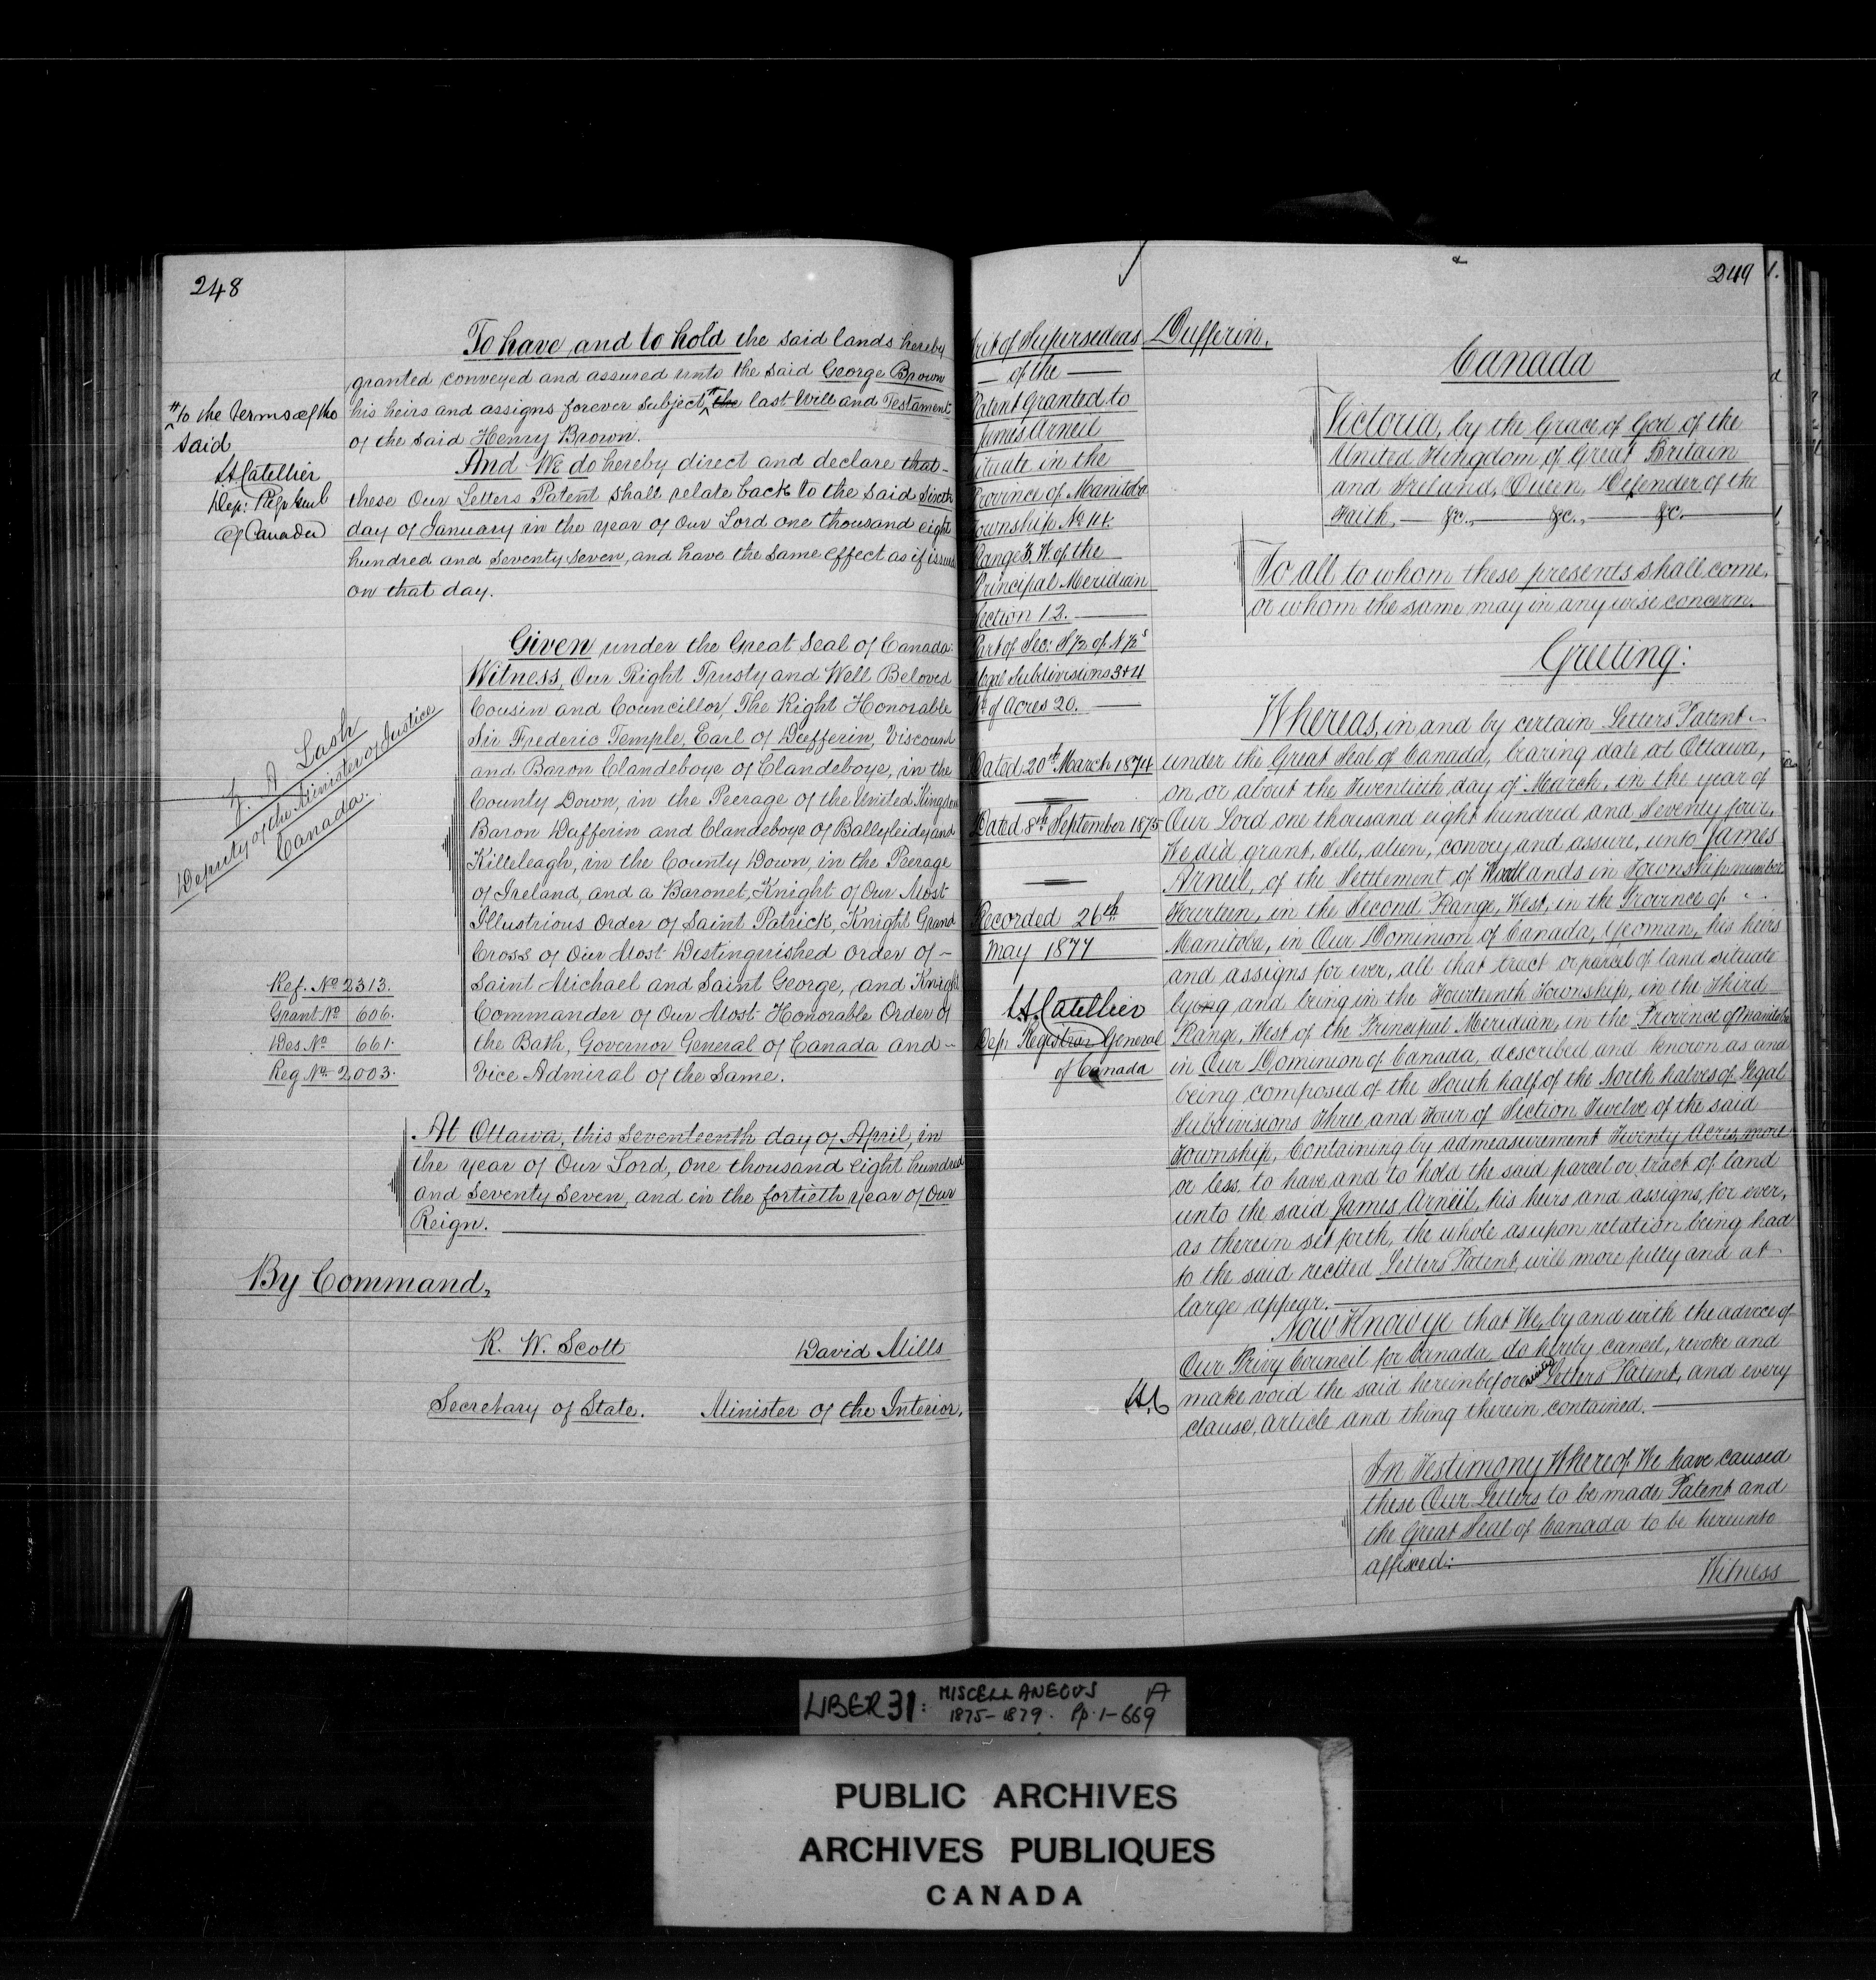 248
To have and to hold the said lands hereby
granted conveyed and assured unto the said George Brown
his heirs and assigns forever subject the last Will and Testament
of the said Henry Brown.
# to the terms of the
said
L. A. Catellier
Dep: Regr Genl
of Canada
And We do hereby direct and declare that
these Our Letters Patent shall relate back to the said
day of January in the year of Our Lord one thousand eight
hundred and Seventy Seven, and have the same effect as if issued
on that day.
Given under the Great Seal of Canada:
Witness, Our Right Trusty and Well Beloved
Cousin and Councillor, The Right Honorable
Sir Frederic Temple, Earl of Dufferin, Viscount
and Baron Clandeboye of Clandeboye, in the
County Down, in the Peerage of the United Kingdom
Baron Dufferin and Clandeboye of Ballyleidy and
Killeleagh, in the County Down, in the Peerage
of Ireland, and a Baronet, Knight of Our Most
Illustrious Order of Saint Patrick, Knight Grand
Cross of Our Most Distinguished Order of –
Saint Michael and Saint George, and Knight
Commander of Our Most Honorable Order of
the Bath, Governor General of Canada and –
Vice Admiral of the Same.
Z. A. Lash
Deputy of the Minister of Justice
Canada.
Ref. No 2313.
Grant No 606.
Des No 661.
Reg No 2003.
At Ottawa, this Seventeenth day of April, in
the year of Our Lord, One thousand eight hundred
and Seventy Seven, and in the fortieth year of Our
Reign.
By Command,
R. W. Scott David Mills
Secretary of State. Minister of the Interior.
249
Writ of Supersedeas
– of the –
Patent Granted to
James Arneil
situate in the
Province of Manitoba
Township No 14.
Range 3. W. of the
Principal Meridian
Section 12.
Part of Sec: S½ of N½s
Legal Subdivisions 3+4
No of Acres 20.
Dated 20th March 1874
Dated 8th September 1875
Recorded 26th
May 1877
L. A. Catellier
Dep: Registrar General
of Canada
Dufferin.
Canada
Victoria, by the Grace of God of the
United Kingdom of Great Britain
and Ireland, Queen, Defender of the
Faith, – &c., – &c., – &c. –
To all to whom these presents shall come,
or whom the same may in any wise concern.
Greeting:
Whereas, in and by certain Letters Patent
under the Great Seal of Canada, bearing date at Ottawa,
on or about the Twentieth day of March, in the year of
Our Lord one thousand eight hundred and Seventy four,
We did grant, Sell, alien, convey and assure, unto James
Arneil, of the Settlement of Woodlands in Township number
Fourteen, in the Second Range, West, in the Province of
Manitoba, in Our Dominion of Canada, Yeoman, his heirs
and assigns for ever, all that tract or parcel of land situate
lying and being in the Fourteenth Township, in the Third
Range, West of the Principal Meridian, in the Province of Manitoba
in Our Dominion of Canada, described and known as and
being composed of the South half of the North halves of Legal
Subdivisions Three and Four of Section Twelve of the said
Township, Containing by admeasurement Twenty Acres, more
or less, to have and to hold the said parcel or tract of land
unto the said James Arneil, his heirs and assigns, for ever,
as therein set forth, the whole as upon relation being had
to the said recited Letters Patent, will more fully and at
large appear.
Now Know ye that We, by and with the advice of
Our Privy Council for Canada do hereby cancel, revoke and
make void the said hereinbefore recited Letters Patent, and every
clause, article and thing therein contained.
In Testimony Whereof We have caused
these Our Letters to be made Patent and
the Great Seal of Canada to be hereunto
affixed:
Witness
LIBER 31: MISCELLANEOUS A
1875–1879. Pp. 1–669
PUBLIC ARCHIVES
ARCHIVES PUBLIQUES
CANADA